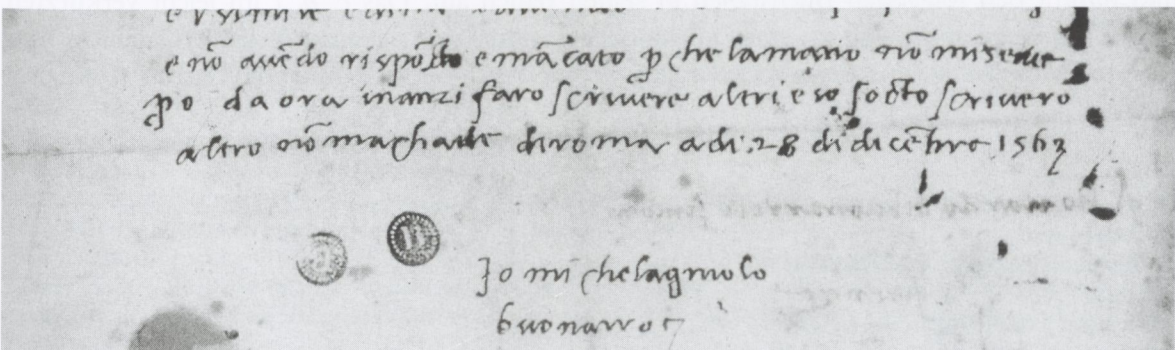 e nō auēdo rispōsto e mācato p̱ che lamano nō miserue
p̱o da ora inanzi faro scriuere altri e io socto scriuero
altro nō machade diroma adi .28 di dicēbre 1563
Io michelagniolo
buonarroti